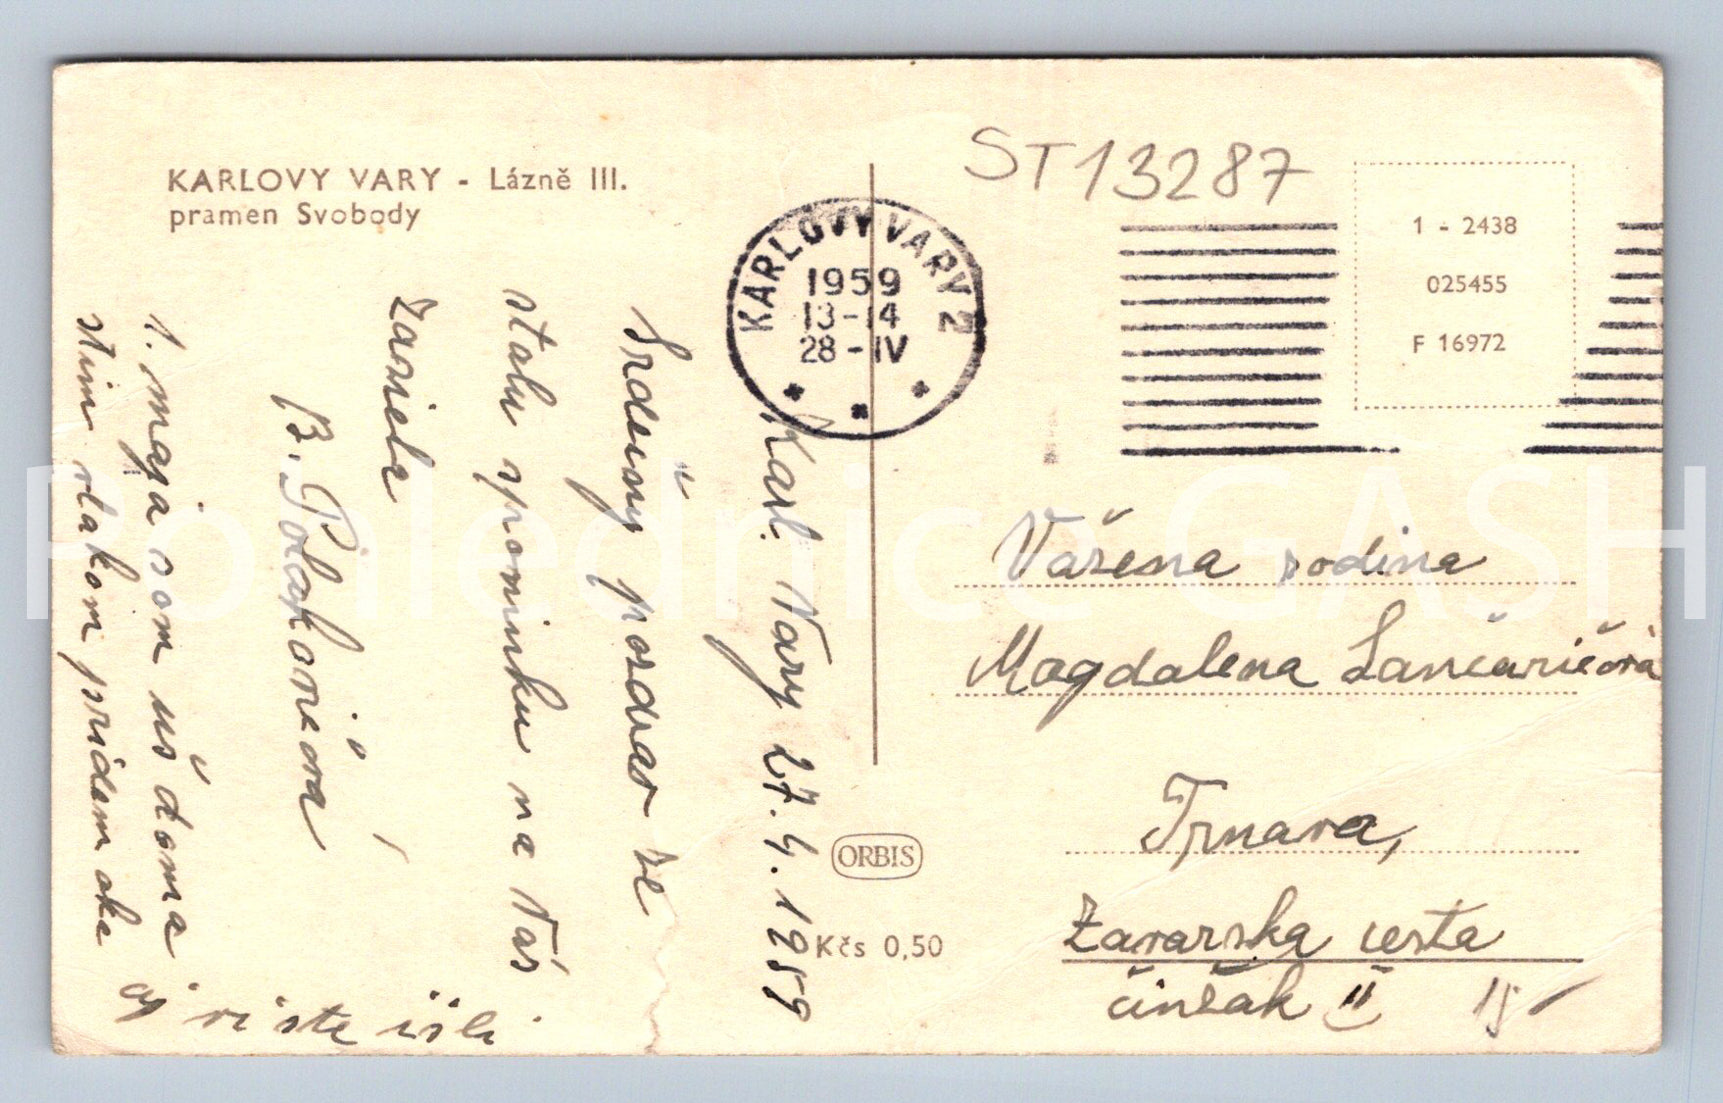 KARLOVY VARY - Lázně III.
pramen Svobody
Karl. Vary 27.4.1959
Srdečny pozdrav ze
stalu spominku na Vás
zasiela
B. Polakovičová
1. maja som už doma
stim vlakom pridem ako
aj vi ste išli
KARLOVY VARY 2
1959
13-14
28-IV
ORBIS
Kčs 0,50
ST13287
1 - 2438
025455
F 16972
Važena rodina
Magdalena Lančaričová
Trnava,
Zavarska cesta
činžak II 15
Pohlednice GASH